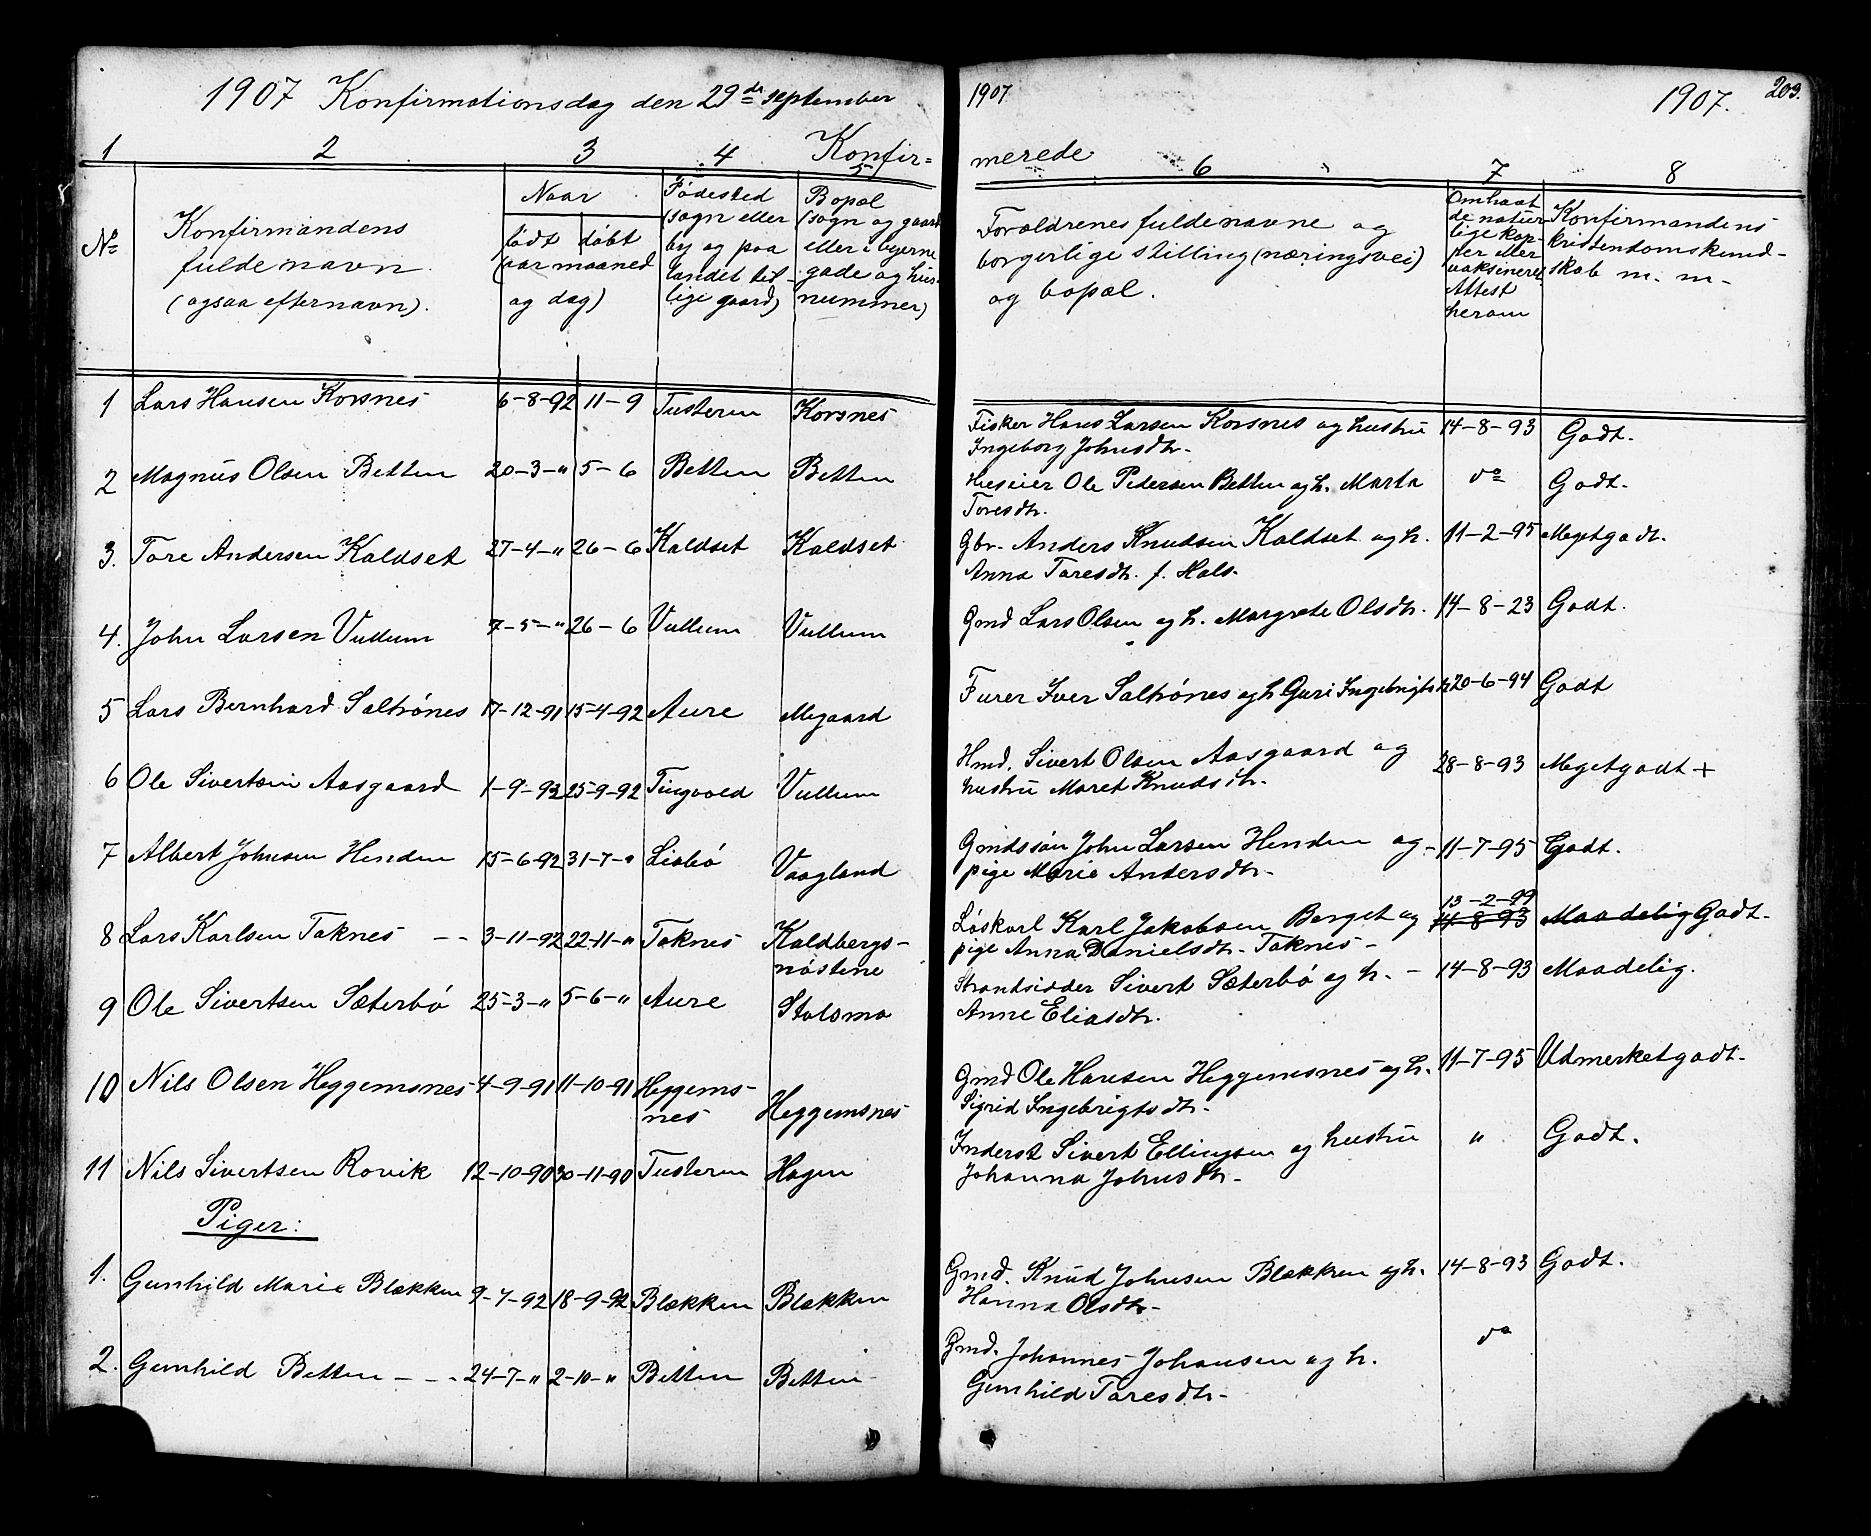 1907 Konfirmationsdag den 29de september
1907
1907.
203.
Konfir=
merede
1 2 3 4 5
6 7 8
No
Konfirmandens
fulde navn
(ogsaa efternavn).
Naar
født
døbt
(aar maaned
og dag)
Fødested
(sogn eller
by og paa
landet til-
lige gaard)
Bopæl
(sogn og gaard
eller i byerne
gade og hus-
nummer)
Forældrenes fulde navne og
borgerlige stilling (næringsvei)
og bopæl.
Om havt
de natur-
lige kop-
per eller
vaksineret
Attest
herom
Konfirmandens
kristendomskund-
skab m. m-
1 Lars Hansen Korsnes 6-8-92 11-9 Tusteren Korsnes
Fisker Hans Larsen Korsnes og hustru 14-8-93 Godt.
Ingeborg Johnsdtr-
2 Magnus Olsen Betten 20-3-" 5-6 Betten Betten
Huseier Ole Pedersen Betten og h. Marta do Godt.
Toresdtr.
3. Tore Andersen Kaldset 27-4-" 26-6 Kaldset Kaldset
Gbr. Anders Knudsen Kaldset og h. 11-2-95 Meget godt.
Anna Toresdtr. f. Hals.
4. John Larsen Vullum 7-5-" 26-6 Vullum Vullum
Gmd Lars Olsen og h. Margrete Olsdtr. 14-8-23 Godt.
5 Lars Bernhard Saltrönes 17-12-91 15-4-92 Aure Megaard
Furer Iver Saltrönes og h Guri Ingebrigtsdtr 20-6-94 Godt
6 Ole Sivertsen Aasgaard 1-9-92 25-9-92 Tingvold Vullum
Hmd. Sivert Olsen Aasgaard og 28-8-93 Meget godt +
hustru Maret Knudsdtr.
7 Albert Johnsen Henden 15-6-92 31-7-" Lisbö Vaagland
Gmdssön John Larsen Henden og - 11-7-95 Godt.
pige Marie Andersdtr-
8 Lars Karlsen Taknes - - 3-11-92 22-11-" Taknes Kaldbergs-
nöstene
13-2-99
Löskarl Karl Jakobsen Berget og 14-8-93 Maadelig Godt-
pige Anna Danielsdtr. Taknes-
9 Ole Sivertsen Sæterbö 25-3-" 5-6-" Aure Stolsmo
Strandsidder Sivert Sæterbö og h. - 14-8-93 Maadelig.
Anne Eliasdtr.
10 Nils Olsen Heggemsnes 4-9-91 11-10-91 Heggems-
nes Heggemsnes
Gmd Ole Hansen Heggemsnes og h. 11-7-95 Udmerket godt-
Sigrid Ingebrigtsdtr-
11 Nils Sivertsen Rovik 12-10-90 30-11-90 Tusteren Hagen
Inderst Sivert Ellingsen og hustru " Godt.
Johanna Johnsdtr-
Piger:
1. Gunhild Marie Blekken 9-7-92 18-9-92 Blekken Blekken
Gmd. Knud Johnsen Blekken og h. 14-8-93 Godt.
Hanna Olsdtr-
2. Gunhild Betten - - - 24-7-" 2-10-" Betten Betten
Gmd. Johannes Johansen og h. do
Gunhild Toresdtr-